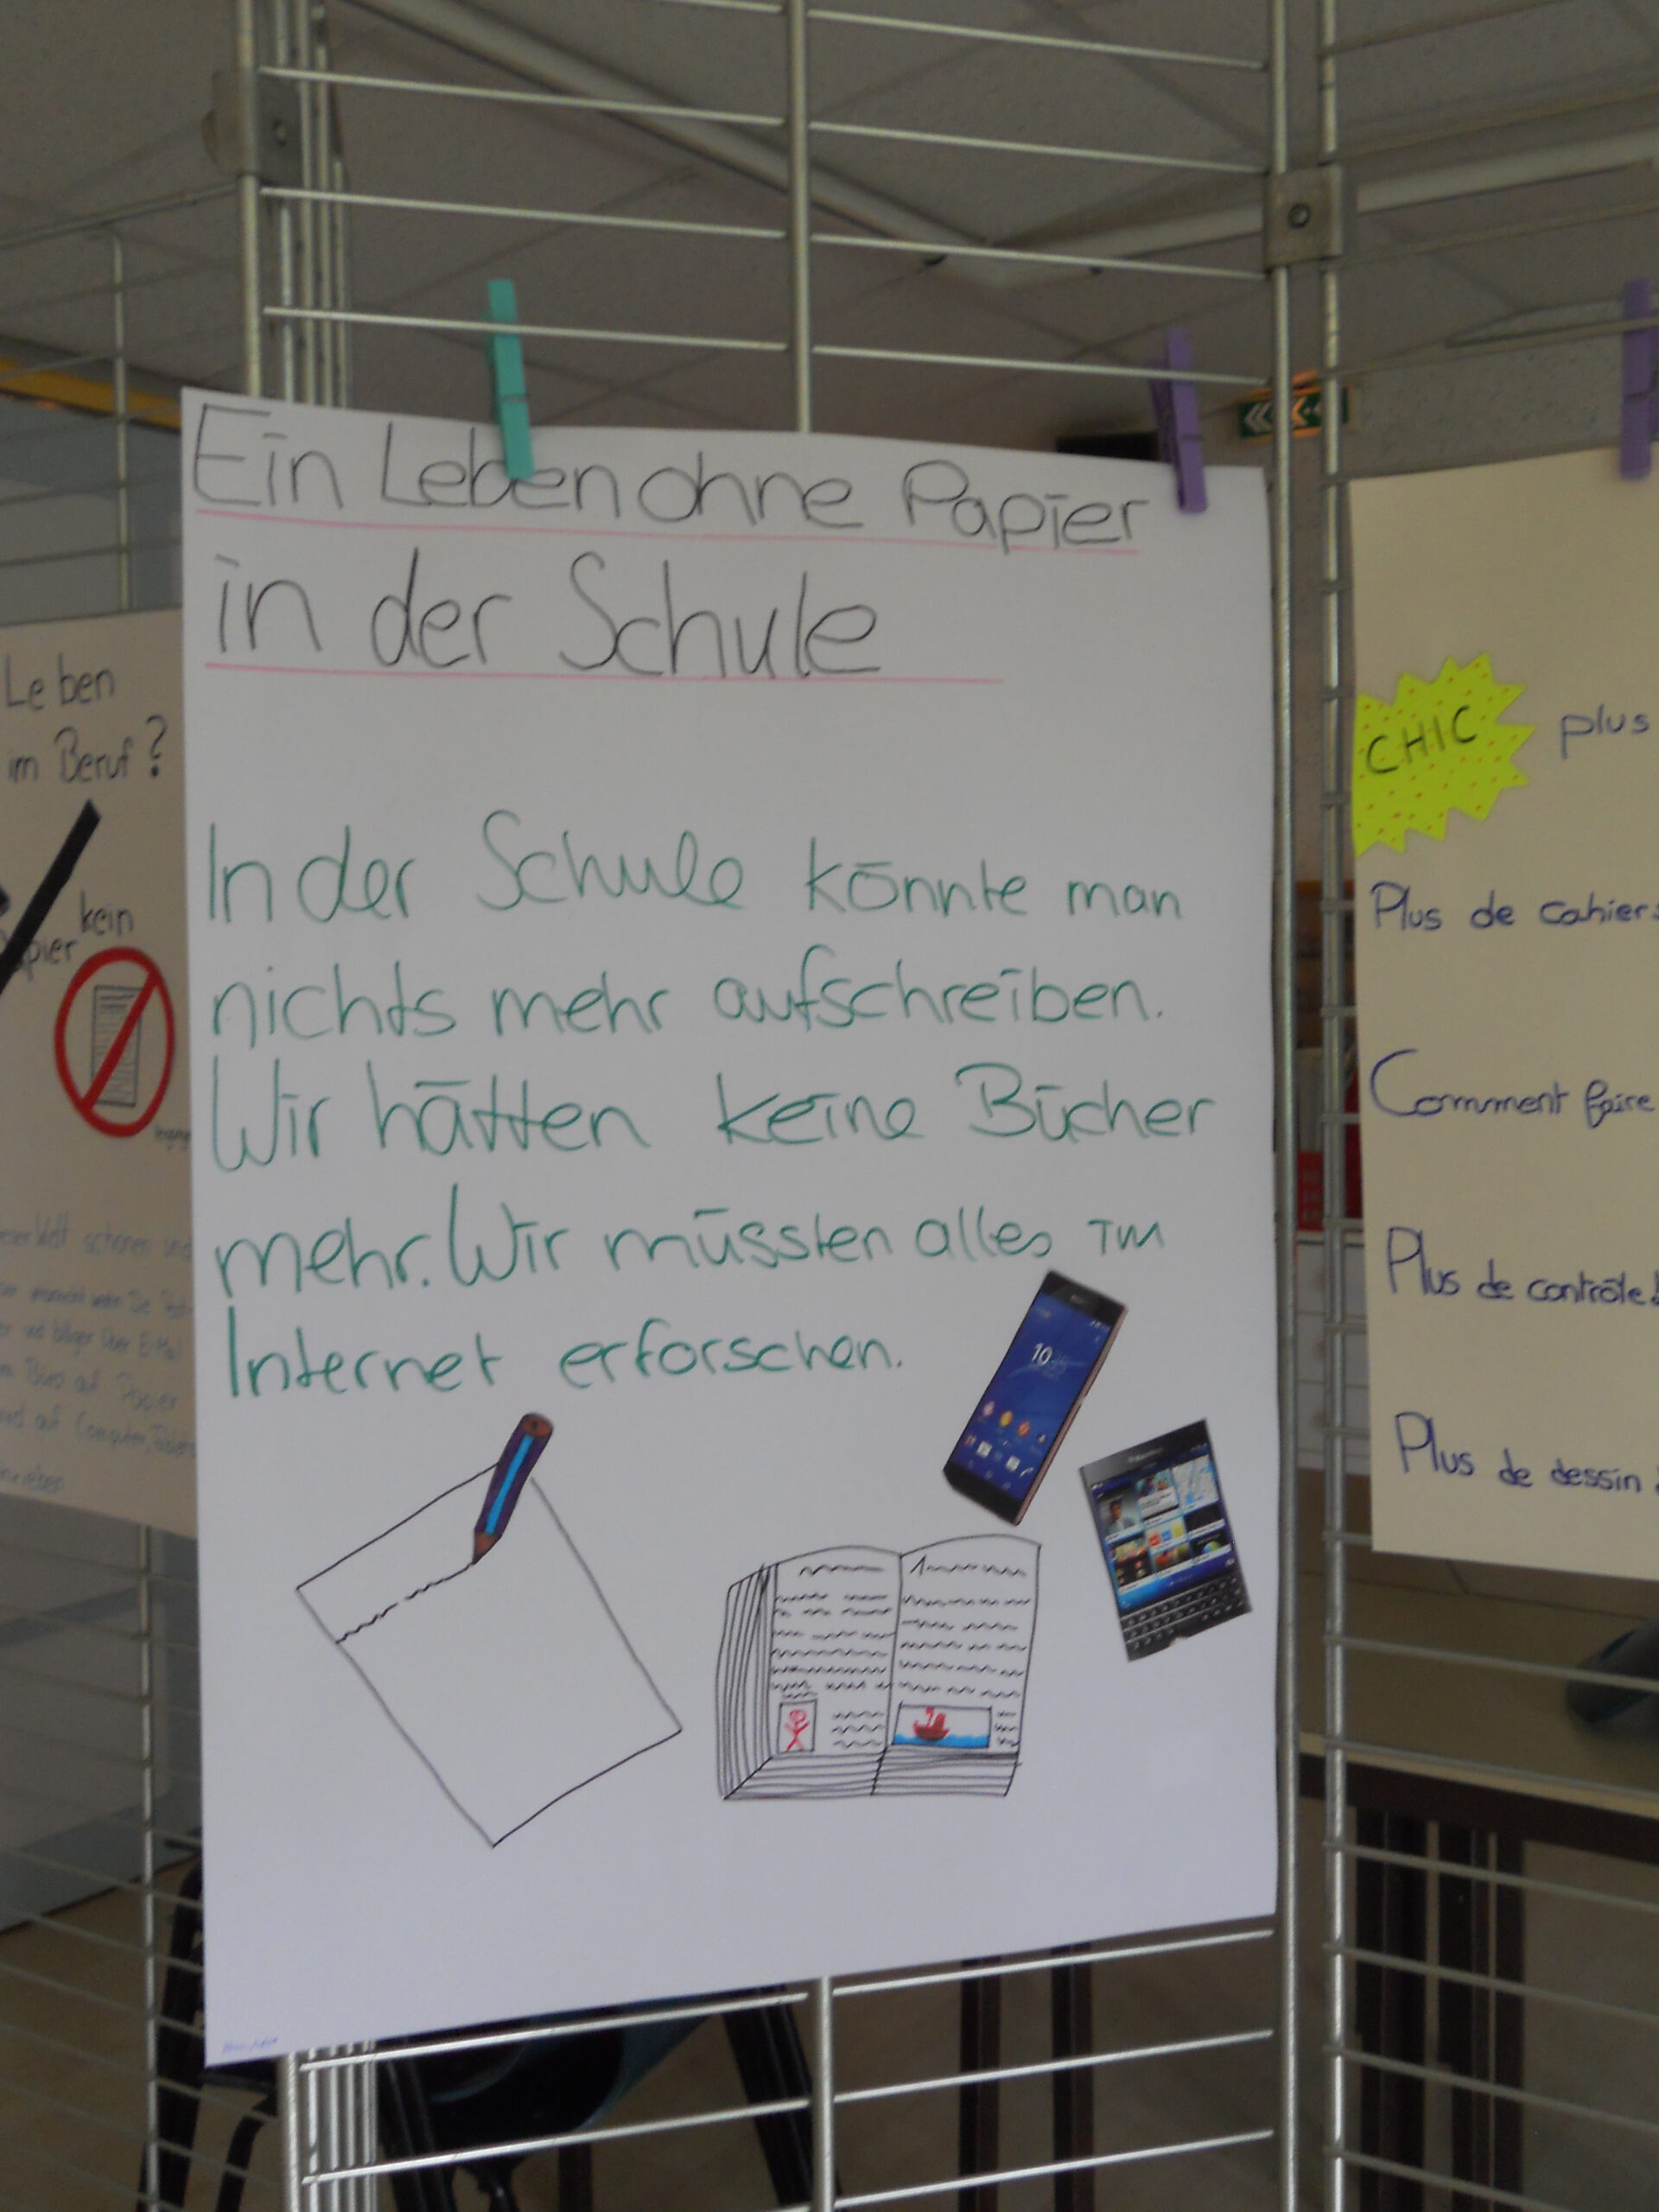 Ein Leben ohne Papier
in der Schule
In der Schule könnte man
nichts mehr aufschreiben.
Wir hätten keine Bücher
mehr. Wir müssten alles im
Internet erforschen.
10
Leben
im Beruf?
kein
pier
schonen und
auf Papier
und auf Computer,
CHIC plus
Plus de cahiers
Comment faire
Plus de contrôle!
Plus de dessin